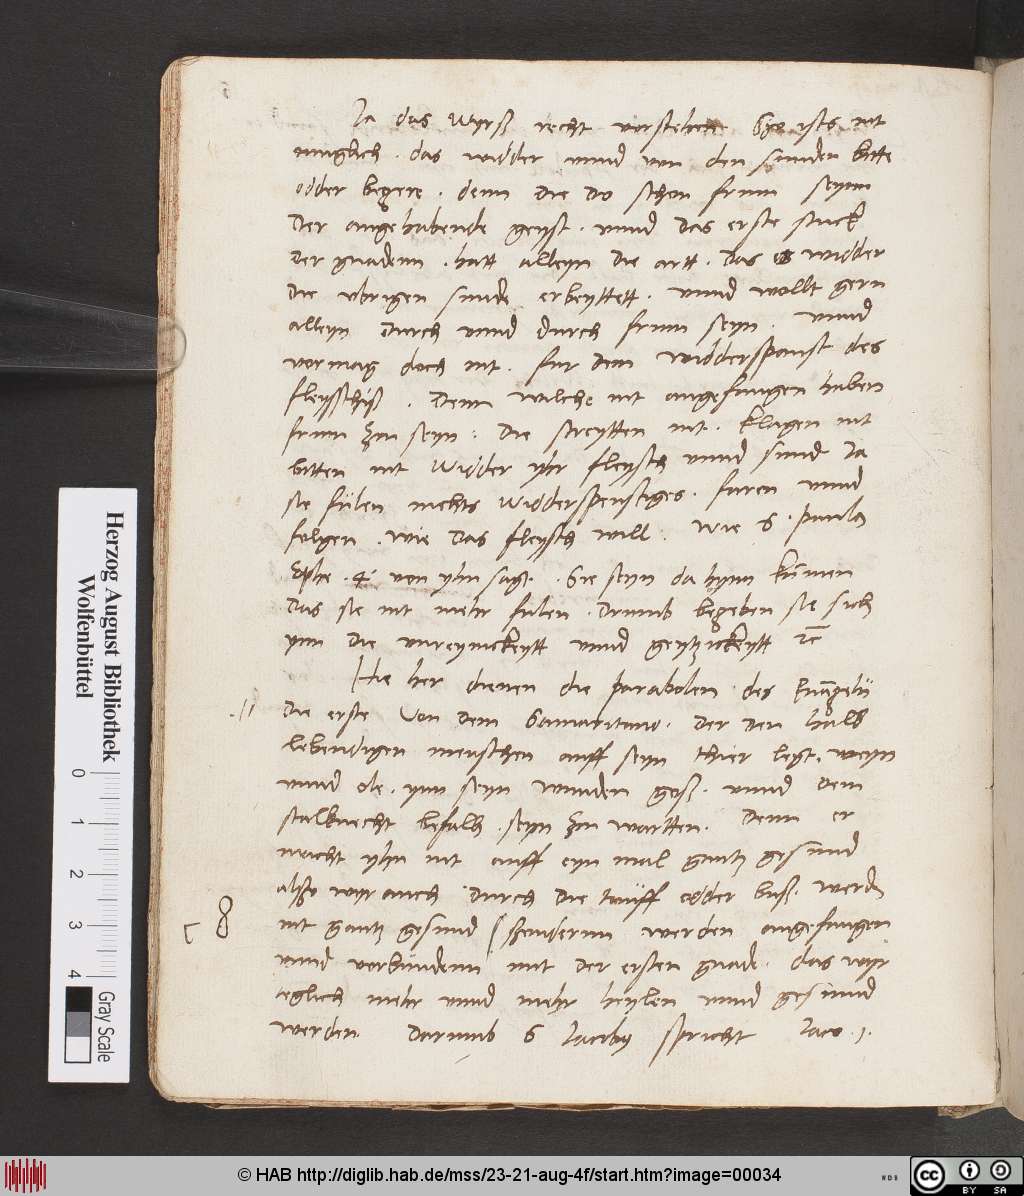 Ja das wyrß recht vorstehen Szo ists nit
muglich . das widder vnnd von den sunden bitte
odder begere . denn die do schon frum seynn
Der angehabende geyst . vnnd das erste stuck
der gnadenn . hatt alleyn die artt . das es widder
die vbrigen sunde erbeyttett . vnnd wollt gern
alleyn durch vnnd durch frum seyn . vnnd
vormag doch nit . fur dem widderspanst des
fleyschiß . Denn wilche nit angefangen haben
frum zcu seyn : die streytten nit . klagen nit
bitten nit widder yhr fleysch vnnd sund Ja
sie fülen nichts widderspenstiges . faren vnnd
folgen . wie das fleysch will . wie S . paulus
Ephe . 4 . von yhn sagt . Sie seyn da hynn kümen
das sie nit mehr fulen . drumb begeben sie sich
ynn die vnreynickeytt vnnd geytzickeytt rc
Hie her dienen die parabolen des Euangelij
.11
die erste Von dem Samaritano . der den halb
lebendigen menschen auff seyn thier legt . weyn
vnnd ole . ynn seyn wunden goß . vnnd dem
stalknecht befalh . seyn zcu wartten . Denn er
macht yhn nit auff eyn mal gantz gesund
alßo wyr auch durch die tauff odder buß . werden
8
nit gantz gesund szondernn werden angefangen
vnnd vorbundenn mit der ersten gnade . das wyr
teglich mehr vnnd mehr heylen vnnd gesund
werden darumb S Jacobus spricht Jaco . 1 .
Herzog August Bibliothek
Wolfenbüttel
0 1 2 3 4
Gray Scale
© HAB http://diglib.hab.de/mss/23-21-aug-4f/start.htm?image=00034
WDB
cc BY SA